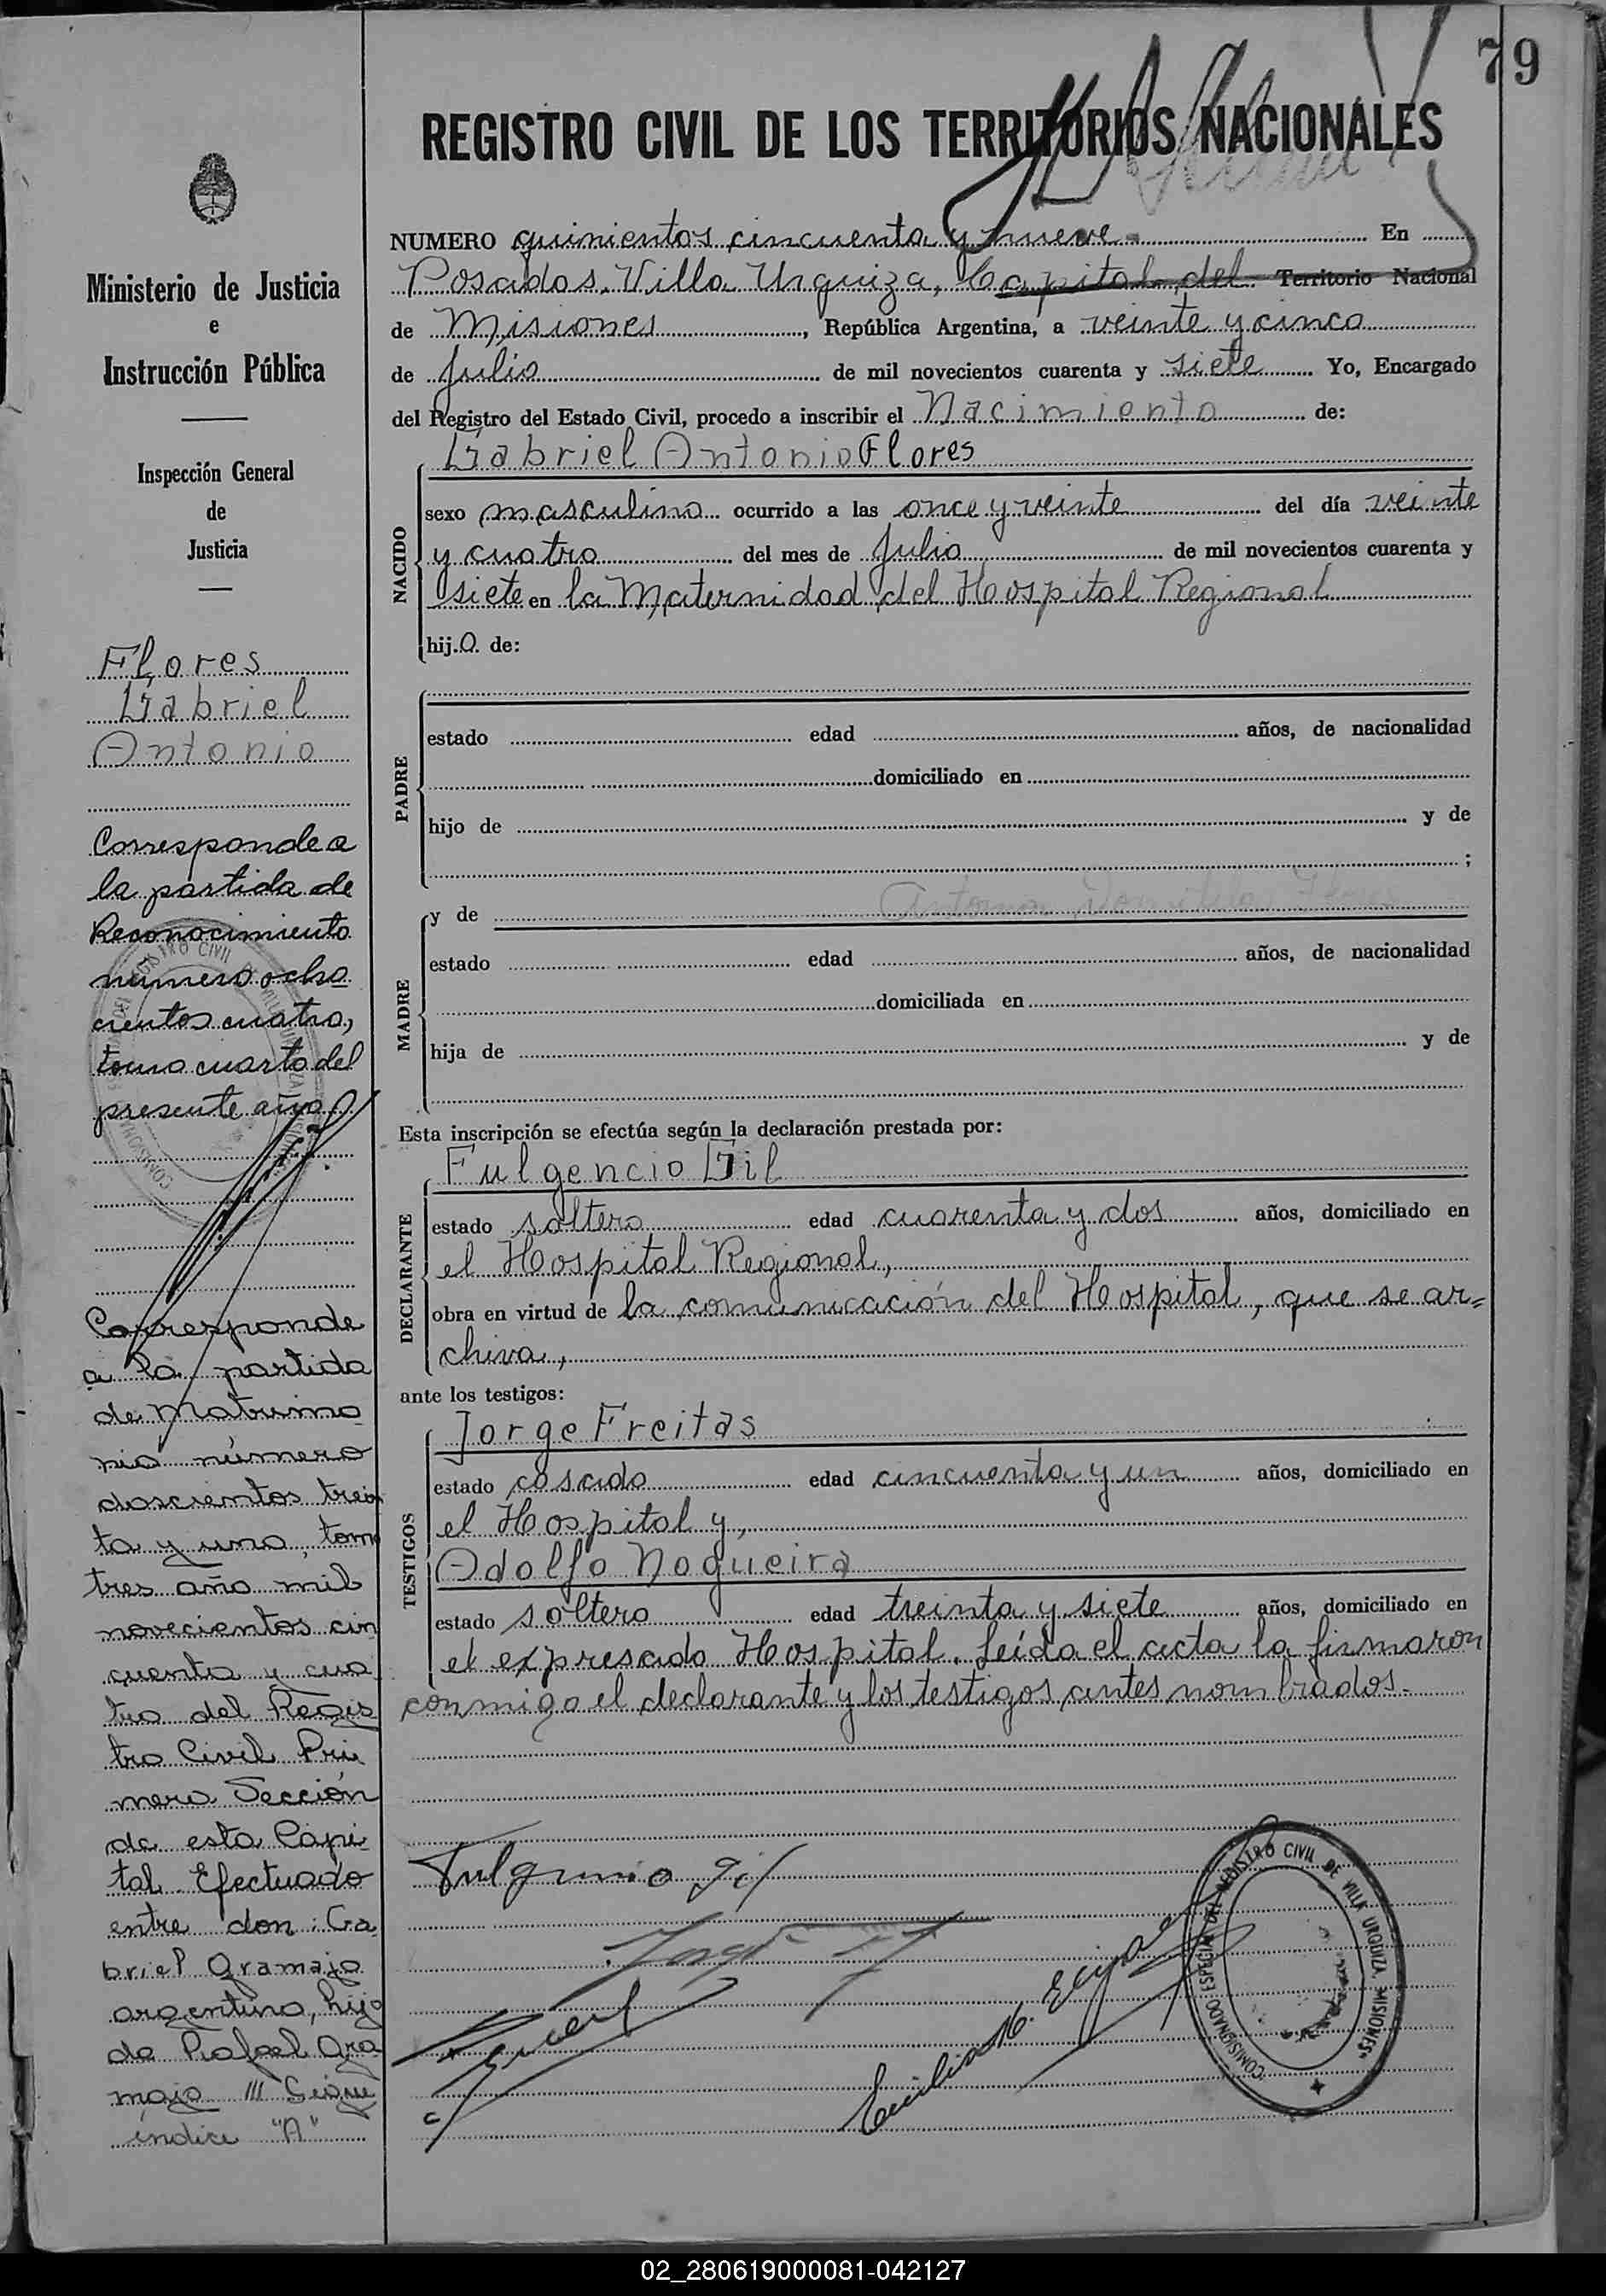 79
REGISTRO CIVIL DE LOS TERRITORIOS NACIONALES
NUMERO quinientos cincuenta y nueve En
Posadas, Villa Urquiza, Capital del Territorio Nacional
de Misiones, República Argentina, a veinte y cinco
de Julio de mil novecientos cuarenta y siete Yo, Encargado
del Registro del Estado Civil, procedo a inscribir el Nacimiento de:
Gabriel Antonio Flores
NACIDO
sexo masculino ocurrido a las once y veinte del día veinte
y cuatro del mes de Julio de mil novecientos cuarenta y
siete en la Maternidad del Hospital Regional
hij.o. de:
PADRE
estado edad años, de nacionalidad
domiciliado en
hijo de y de
;
MADRE
y de Antonia Flores
estado edad años, de nacionalidad
domiciliada en
hija de y de
Esta inscripción se efectúa según la declaración prestada por:
Fulgencio Gil
DECLARANTE
estado soltero edad cuarenta y dos años, domiciliado en
el Hospital Regional,
obra en virtud de la comunicación del Hospital, que se ar=
chiva,
ante los testigos:
TESTIGOS
Jorge Freitas
estado casado edad cincuenta y un años, domiciliado en
el Hospital y,
Adolfo Nogueira
estado soltero edad treinta y siete años, domiciliado en
el expresado Hospital. Leída el acta la firmaron
conmigo el declarante y los testigos antes nombrados.-
Fulgencio Gil
COMISIONADO ESPECIAL DEL REGISTRO CIVIL DE VILLA URQUIZA, MISIONES
Ministerio de Justicia
e
Instrucción Pública
Inspección General
de
Justicia
Flores
Gabriel
Antonio
Corresponde a
la partida de
Reconocimiento
número ocho
cientos cuatro,
tomo cuarto del
presente año
Corresponde
a la partida
de Matrimo
nio número
doscientos trein
ta y uno, tomo
tres año mil
novecientos cin
cuenta y cua
tro del Regis
tro Civil Pri
mera Sección
de esta Capi
tal. Efectuado
entre don: Ga
briel Gramajo
argentino, hijo
de Rafael Gra
majo /// Sigue
índice "A"
02_280619000081-042127